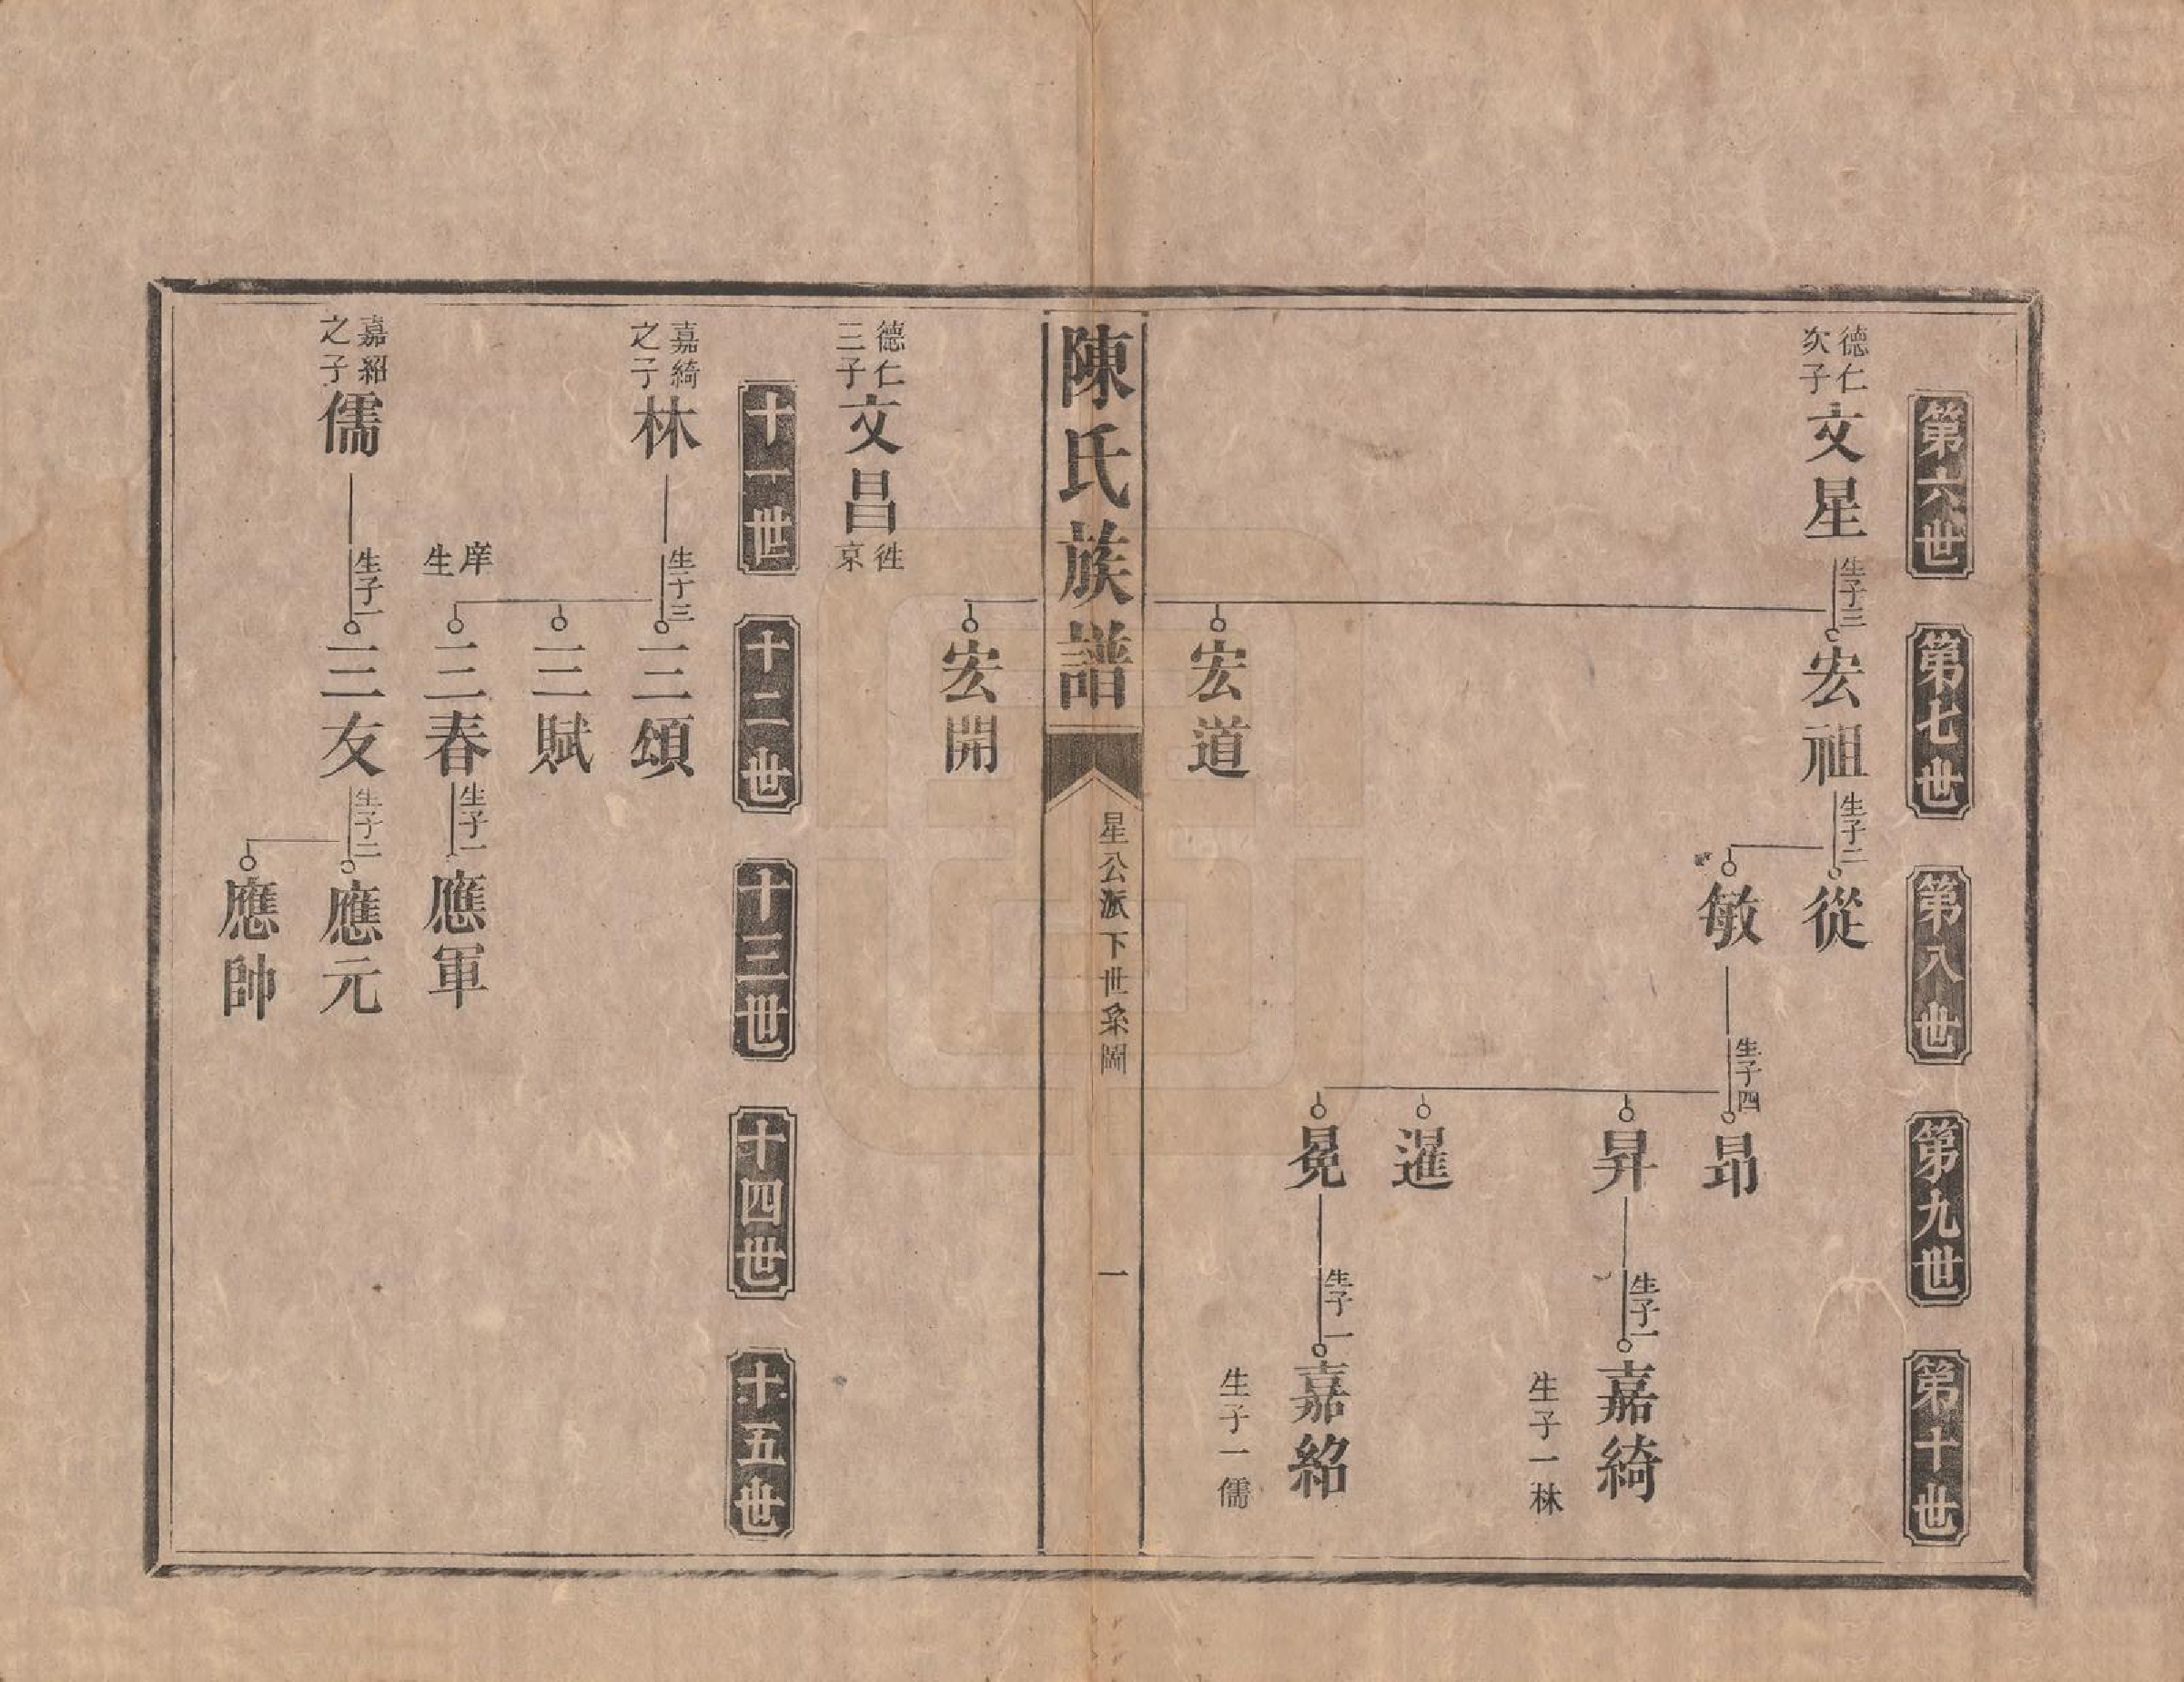 第六世
第七世
第八世
第九世
第十世
德仁
次子
文星
生子三
宏祖
生子二
從
敏
生子四
昂
昇
生子一
嘉綺
生子一林
暹
冕
生子一
嘉紹
生子一儒
宏道
陳氏族譜
星公派下世系圖
一
宏開
德仁
三子
文昌
徃
京
十一世
十二世
十三世
十四世
十五世
嘉綺
之子
林
生子三
三頌
三賦
庠
生
三春
生子一
應軍
嘉紹
之子
儒
生子一
三友
生子二
應元
應帥